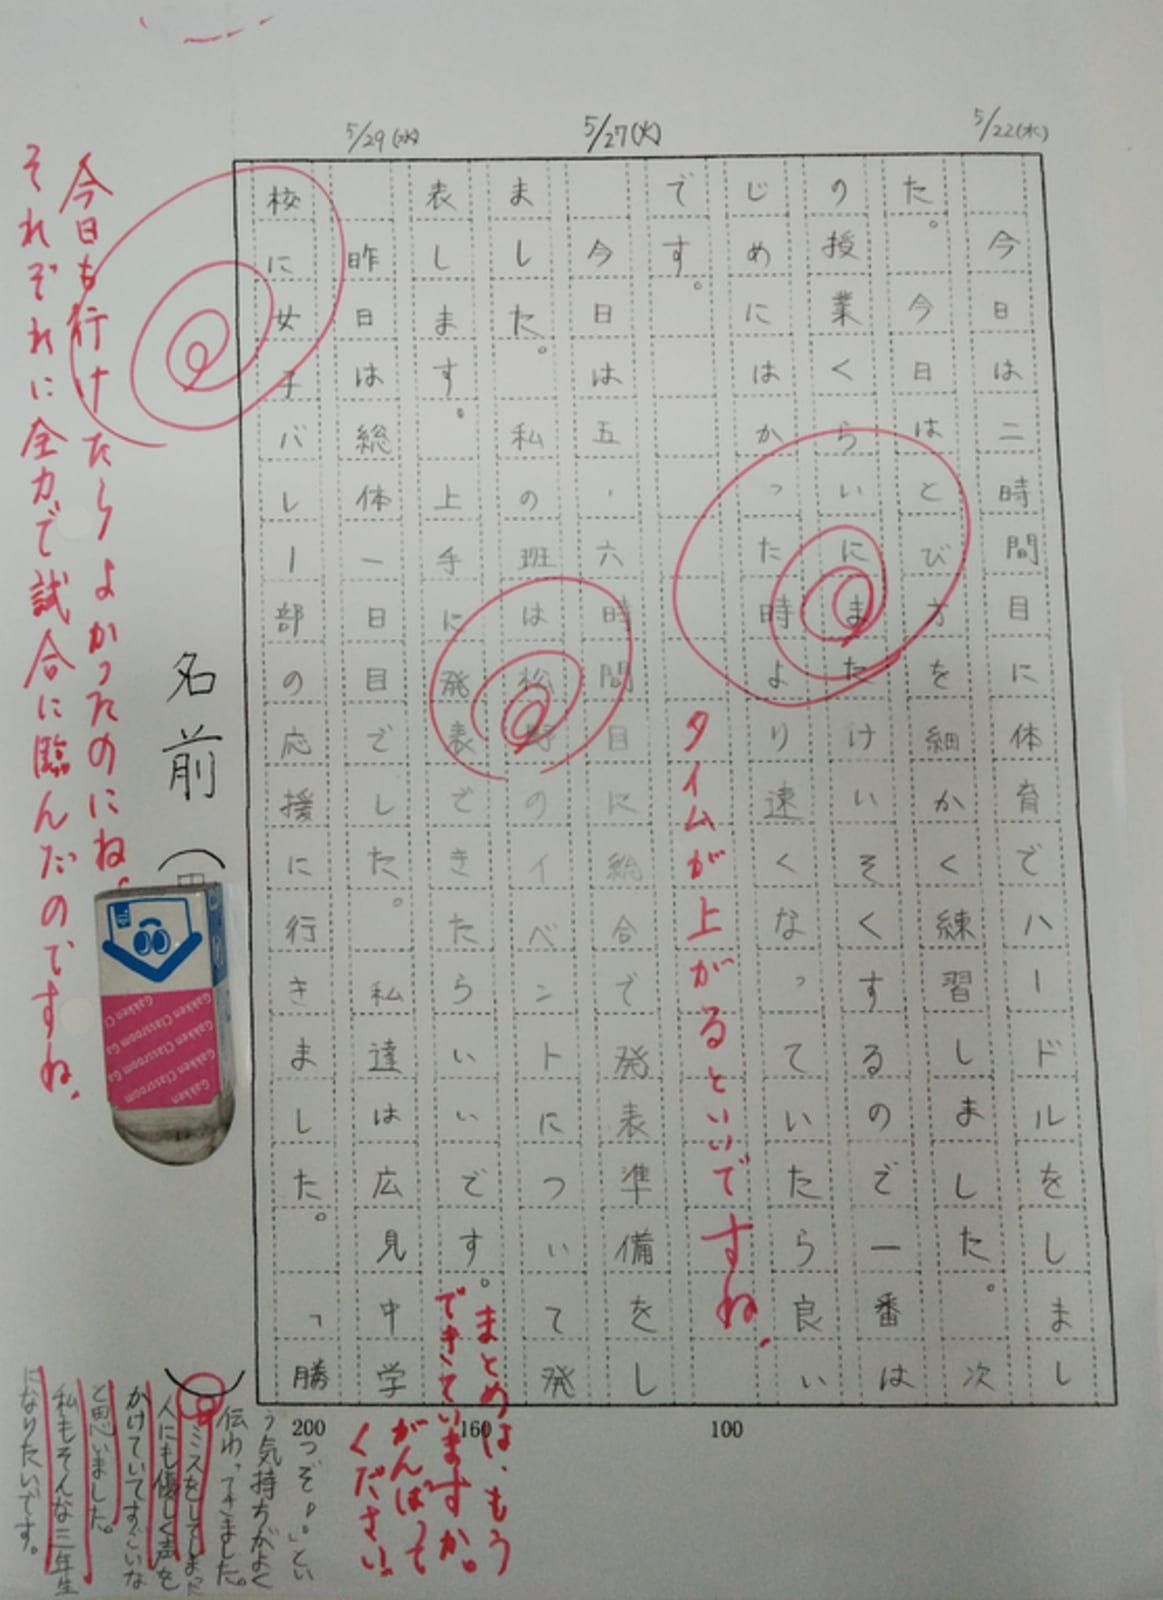 5/22(水)
今日は二時間目に体育でハードルをしまし
た。今日はとび方を細かく練習しました。次
の授業くらいにまたけいそくするので一番は
じめにはかった時より速くなっていたら良い
です。
タイムが上がるといいですね、
5/27(火)
今日は五、六時間目に総合で発表準備をし
ました。私の班は松野のイベントについて発
表します。上手に発表できたらいいです。
まとめは、もう
できていますか。
がんばって
ください
5/29(水)
昨日は総体一日目でした。私達は広見中学
校に女子バレー部の応援に行きました。「勝
つぞ。」とい
う気持ちがよく
伝わってきました。
ミスをしてしまった
人にも優しく声を
かけていてすごいな
と思いました。
私もそんな三年生
になりたいです。
100
160
200
名前（
今日も行けたらよかったのにね。
それぞれに全力で試合に臨んだのですね、
Gakken Classroom